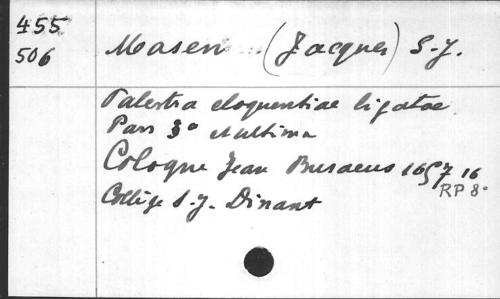 455
506
Masen (Jacques) S.J.
Palestra eloquentiae ligatae
Pars 3a et ultima
Cologne Jean Busaeus 1657 16
RP 8°
Collège S.J. Dinant